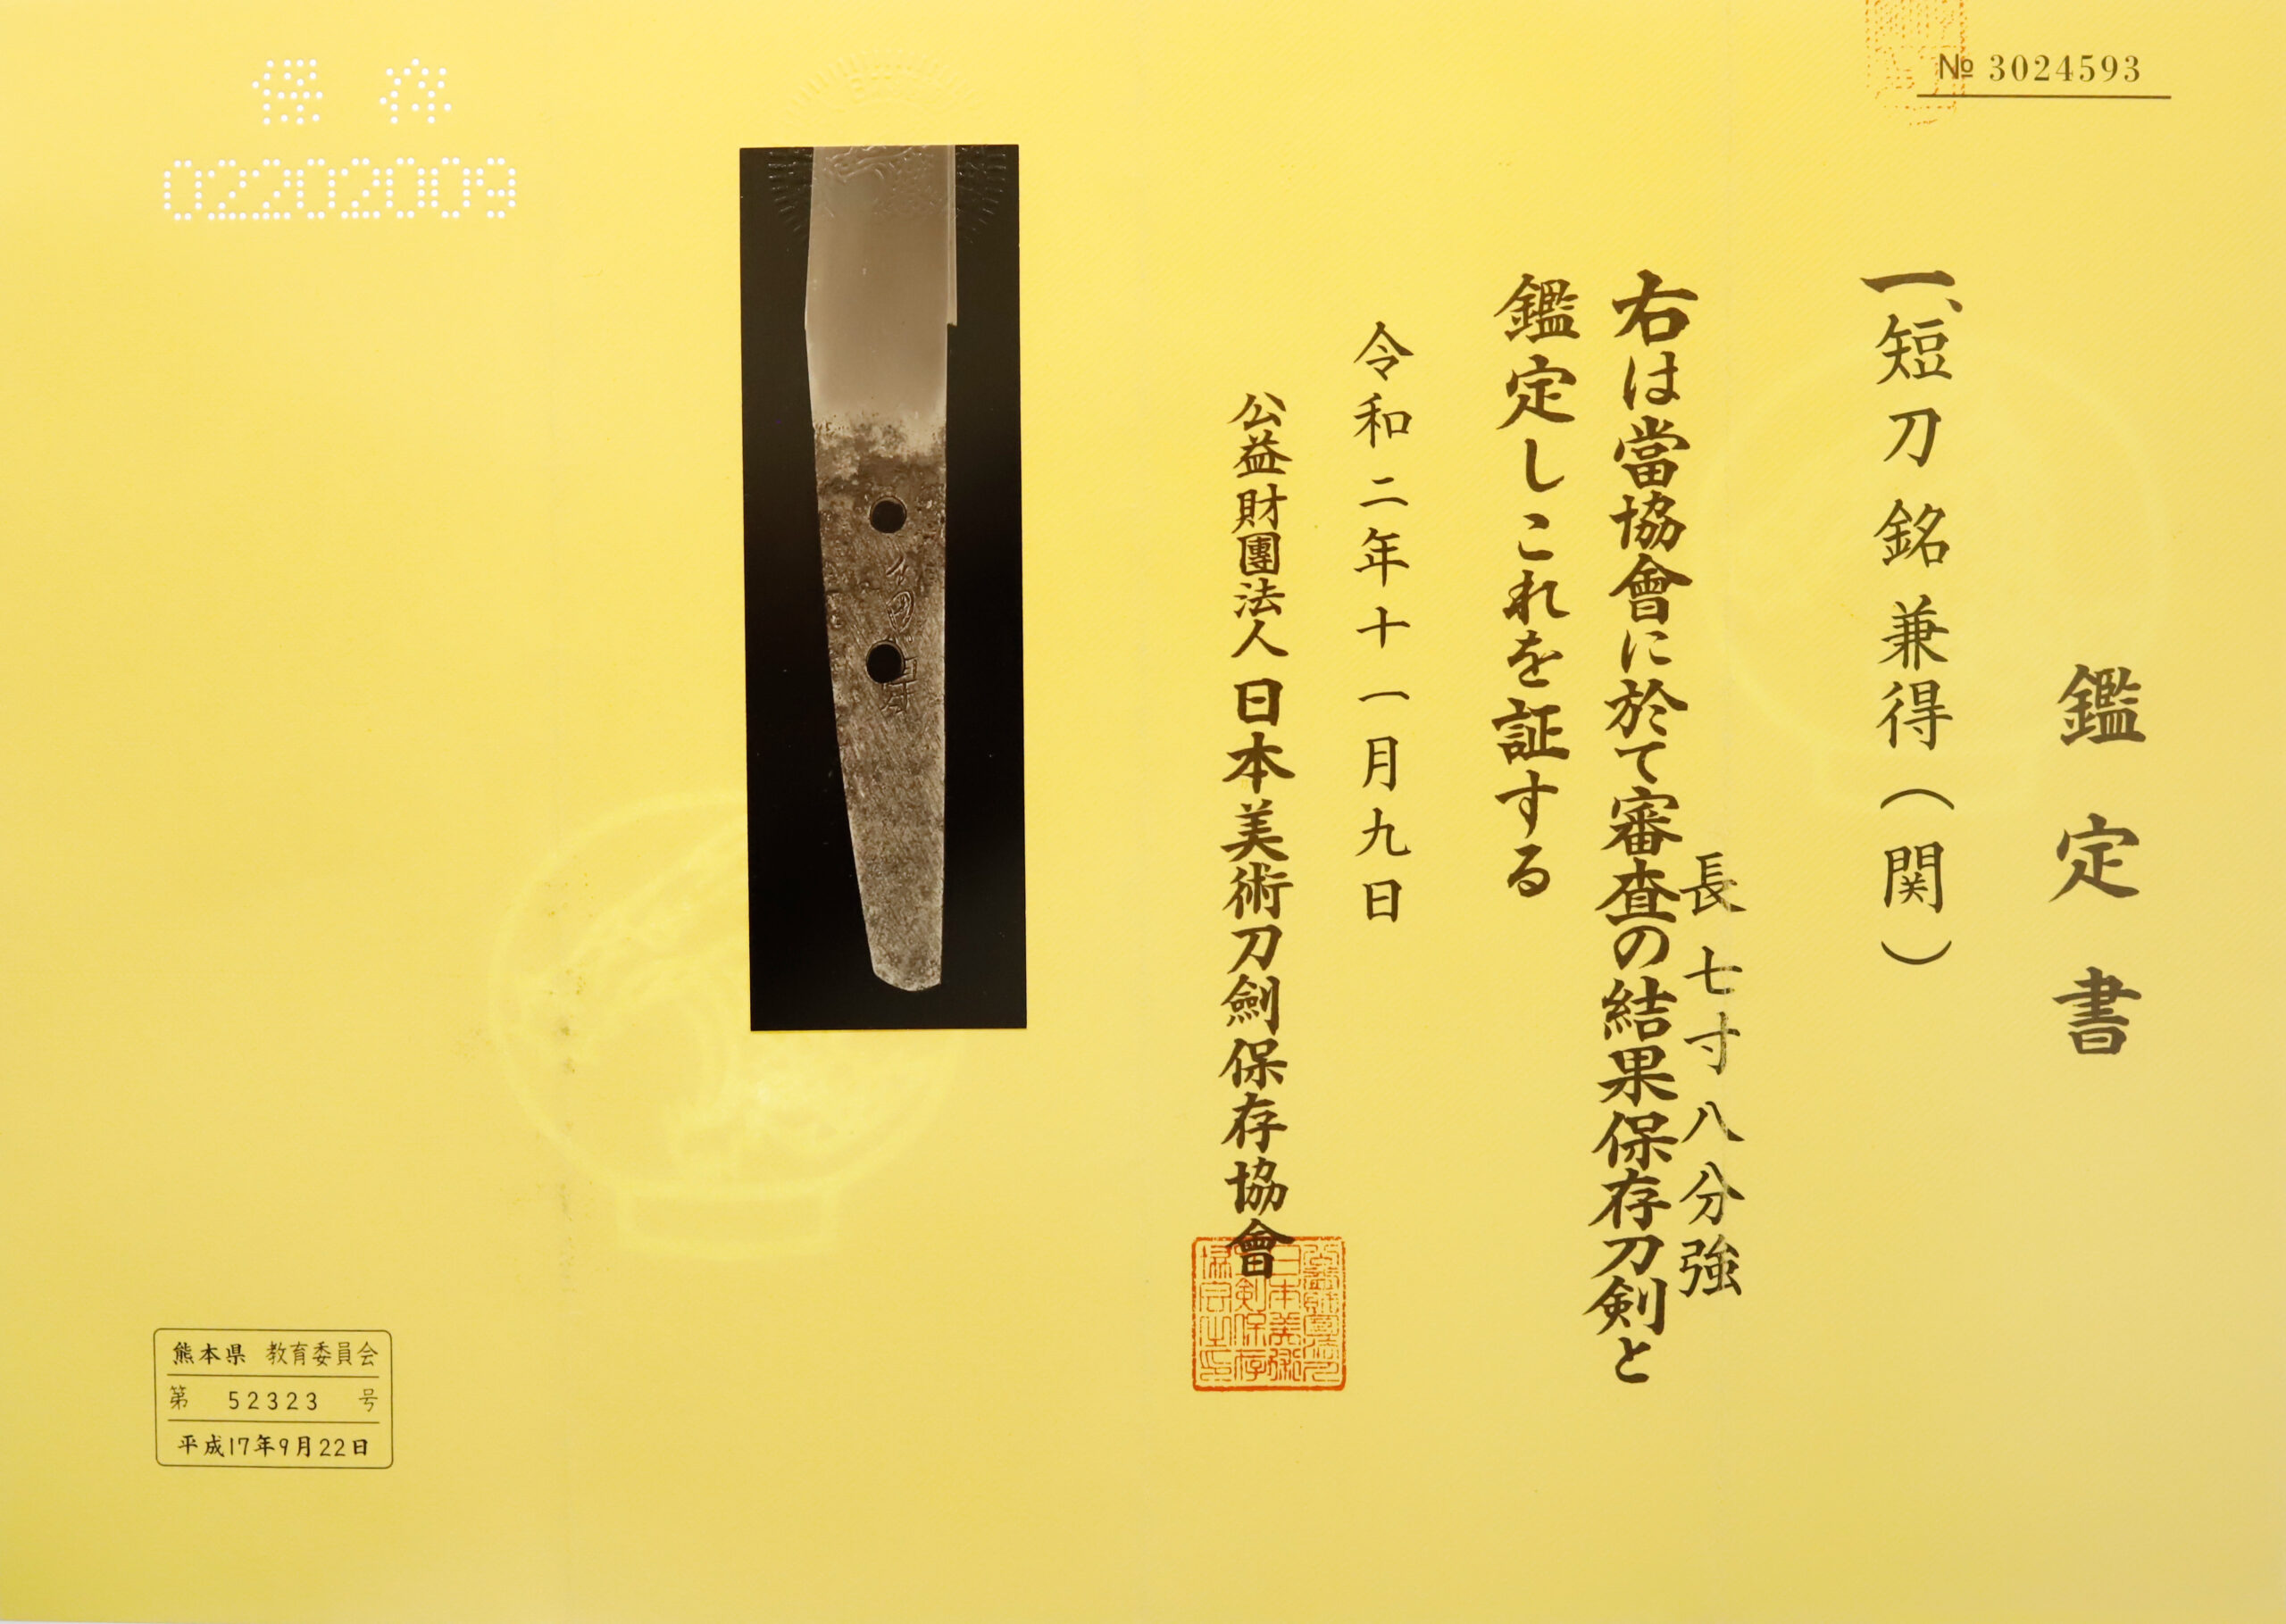 № 3024593
鑑定書
一、短刀 銘 兼得(関)
長七寸八分強
右は當協會に於て審査の結果保存刀剣と
鑑定しこれを証する
令和二年十一月九日
公益財團法人 日本美術刀劍保存協會
保存
02202009
熊本県 教育委員会
第 52323 号
平成17年9月22日